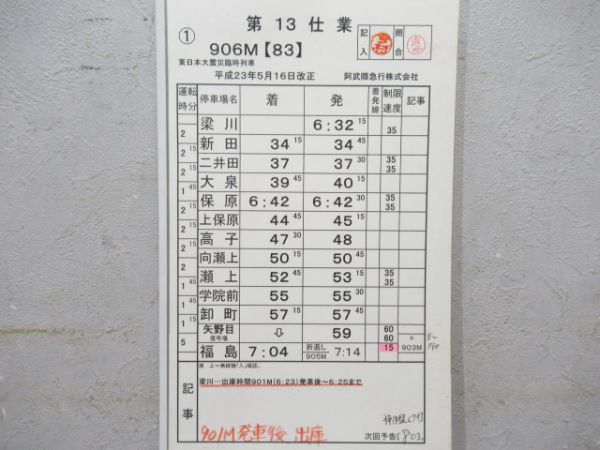 ① 第 13 仕 業 記入 照合
906M【83】
東日本大震災臨時列車
平成23年5月16日改正 阿武隈急行株式会社
運転時分 停車場名 着 発 着発線 制限速度 記事
梁 川 6:32 15 35
2
新 田 34 15 34 45
2 15
二井田 37 37 30 35 35
1 45
大 泉 39 45 40 15
2
保 原 6:42 6:42 30 35 35
2 15
上保原 44 45 45 15
2 15
高 子 47 30 48
2 15
向瀬上 50 15 50 45
2
瀬 上 52 45 53 15 35 35
1 45
学院前 55 55 30
1 45
卸 町 57 15 57 45
1 15
矢野目 信号場 ⇩ 59 60 60 ×
5
福 島 7:04 折返し 905M 7:14 15 903M
記事
梁川…出庫時間901M(6:23)発車後～6:25まで
901M発車後 出庫
次回予告〔80〕。